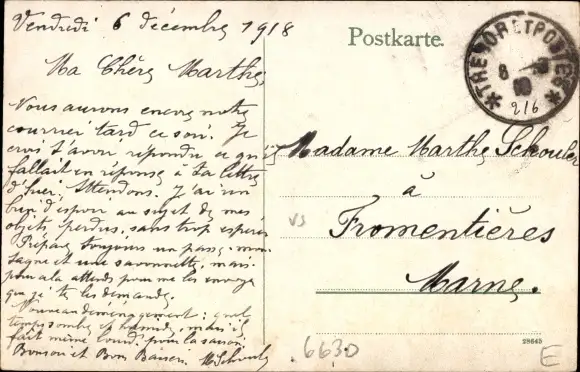 Vendredi 6 décembre 1918
Ma Chère Marthe,
Nous aurons encore notre
courrier tard ce soir. Je
crois t'avoir répondu ce qu'il
fallait en réponse à ta lettre
d'hier. Attendons. J'ai un
bien d'espoir au sujet de mes
objets perdus, sans trop espérer
Prépare toujours un passe-mon-
tagne et une savonnette, mais
pour cela attends pour me les envoyer
que je te les demande.
Nouveau déménagement; quel
temps sombre et humide, mais il
fait même lourd pour la saison.
Bonsoir et Bon Baiser. MSchouler
Postkarte.
*TRESOR ET POSTES*
216
Madame Marthe Schouler
à
Fromentières
Marne.
vs
6630
28645
E